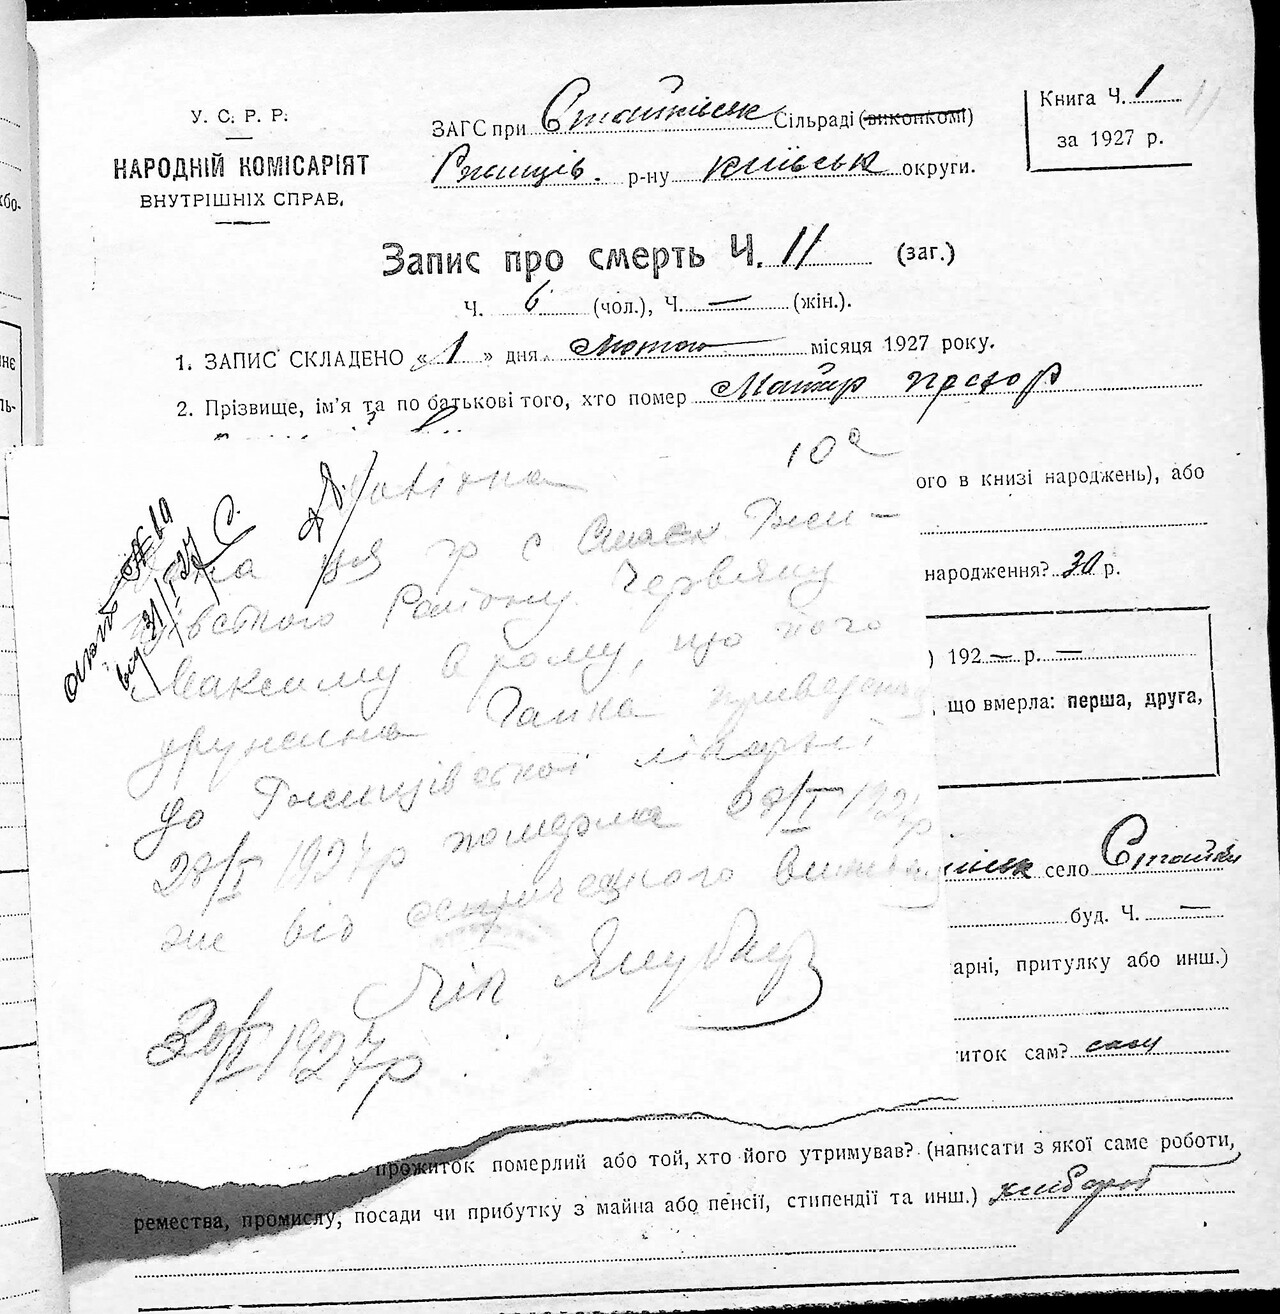 У. С. Р. Р.
НАРОДНІЙ КОМІСАРІЯТ
ВНУТРІШНІХ СПРАВ.
ЗАГС при Стайківськ Сільраді (виконкомі)
Ржищів. р-ну київськ округи.
Книга Ч. 1
за 1927 р.
11
Запис про смерть Ч. 11 (заг.)
Ч. 6 (чол.), Ч. — (жін.).
1. ЗАПИС СКЛАДЕНО «1» дня Лютого місяця 1927 року.
2. Прізвище, ім'я та по батькові того, хто помер
10а
ого в книзі народжень), або
народження? 30 р.
) 192 — р. —
, що вмерла: перша, друга,
село Стайки
буд. Ч. —
арні, притулку або инш.)
иток сам? сам
прожиток померлий або той, хто його утримував? (написати з якої саме роботи,
ремества, промислу, посади чи прибутку з майна або пенсії, стипендії та инш.) хлібороб
№ 19
від 31/I 27
ця гр с Стаєк Ржи-
щівського Району Червяку
Максиму в тому, що його
дружина Ганна приведена
до Ржищівської лікарні
28/I 1927р померла 28/I 1927р
же від
Лік
30/I 1927р